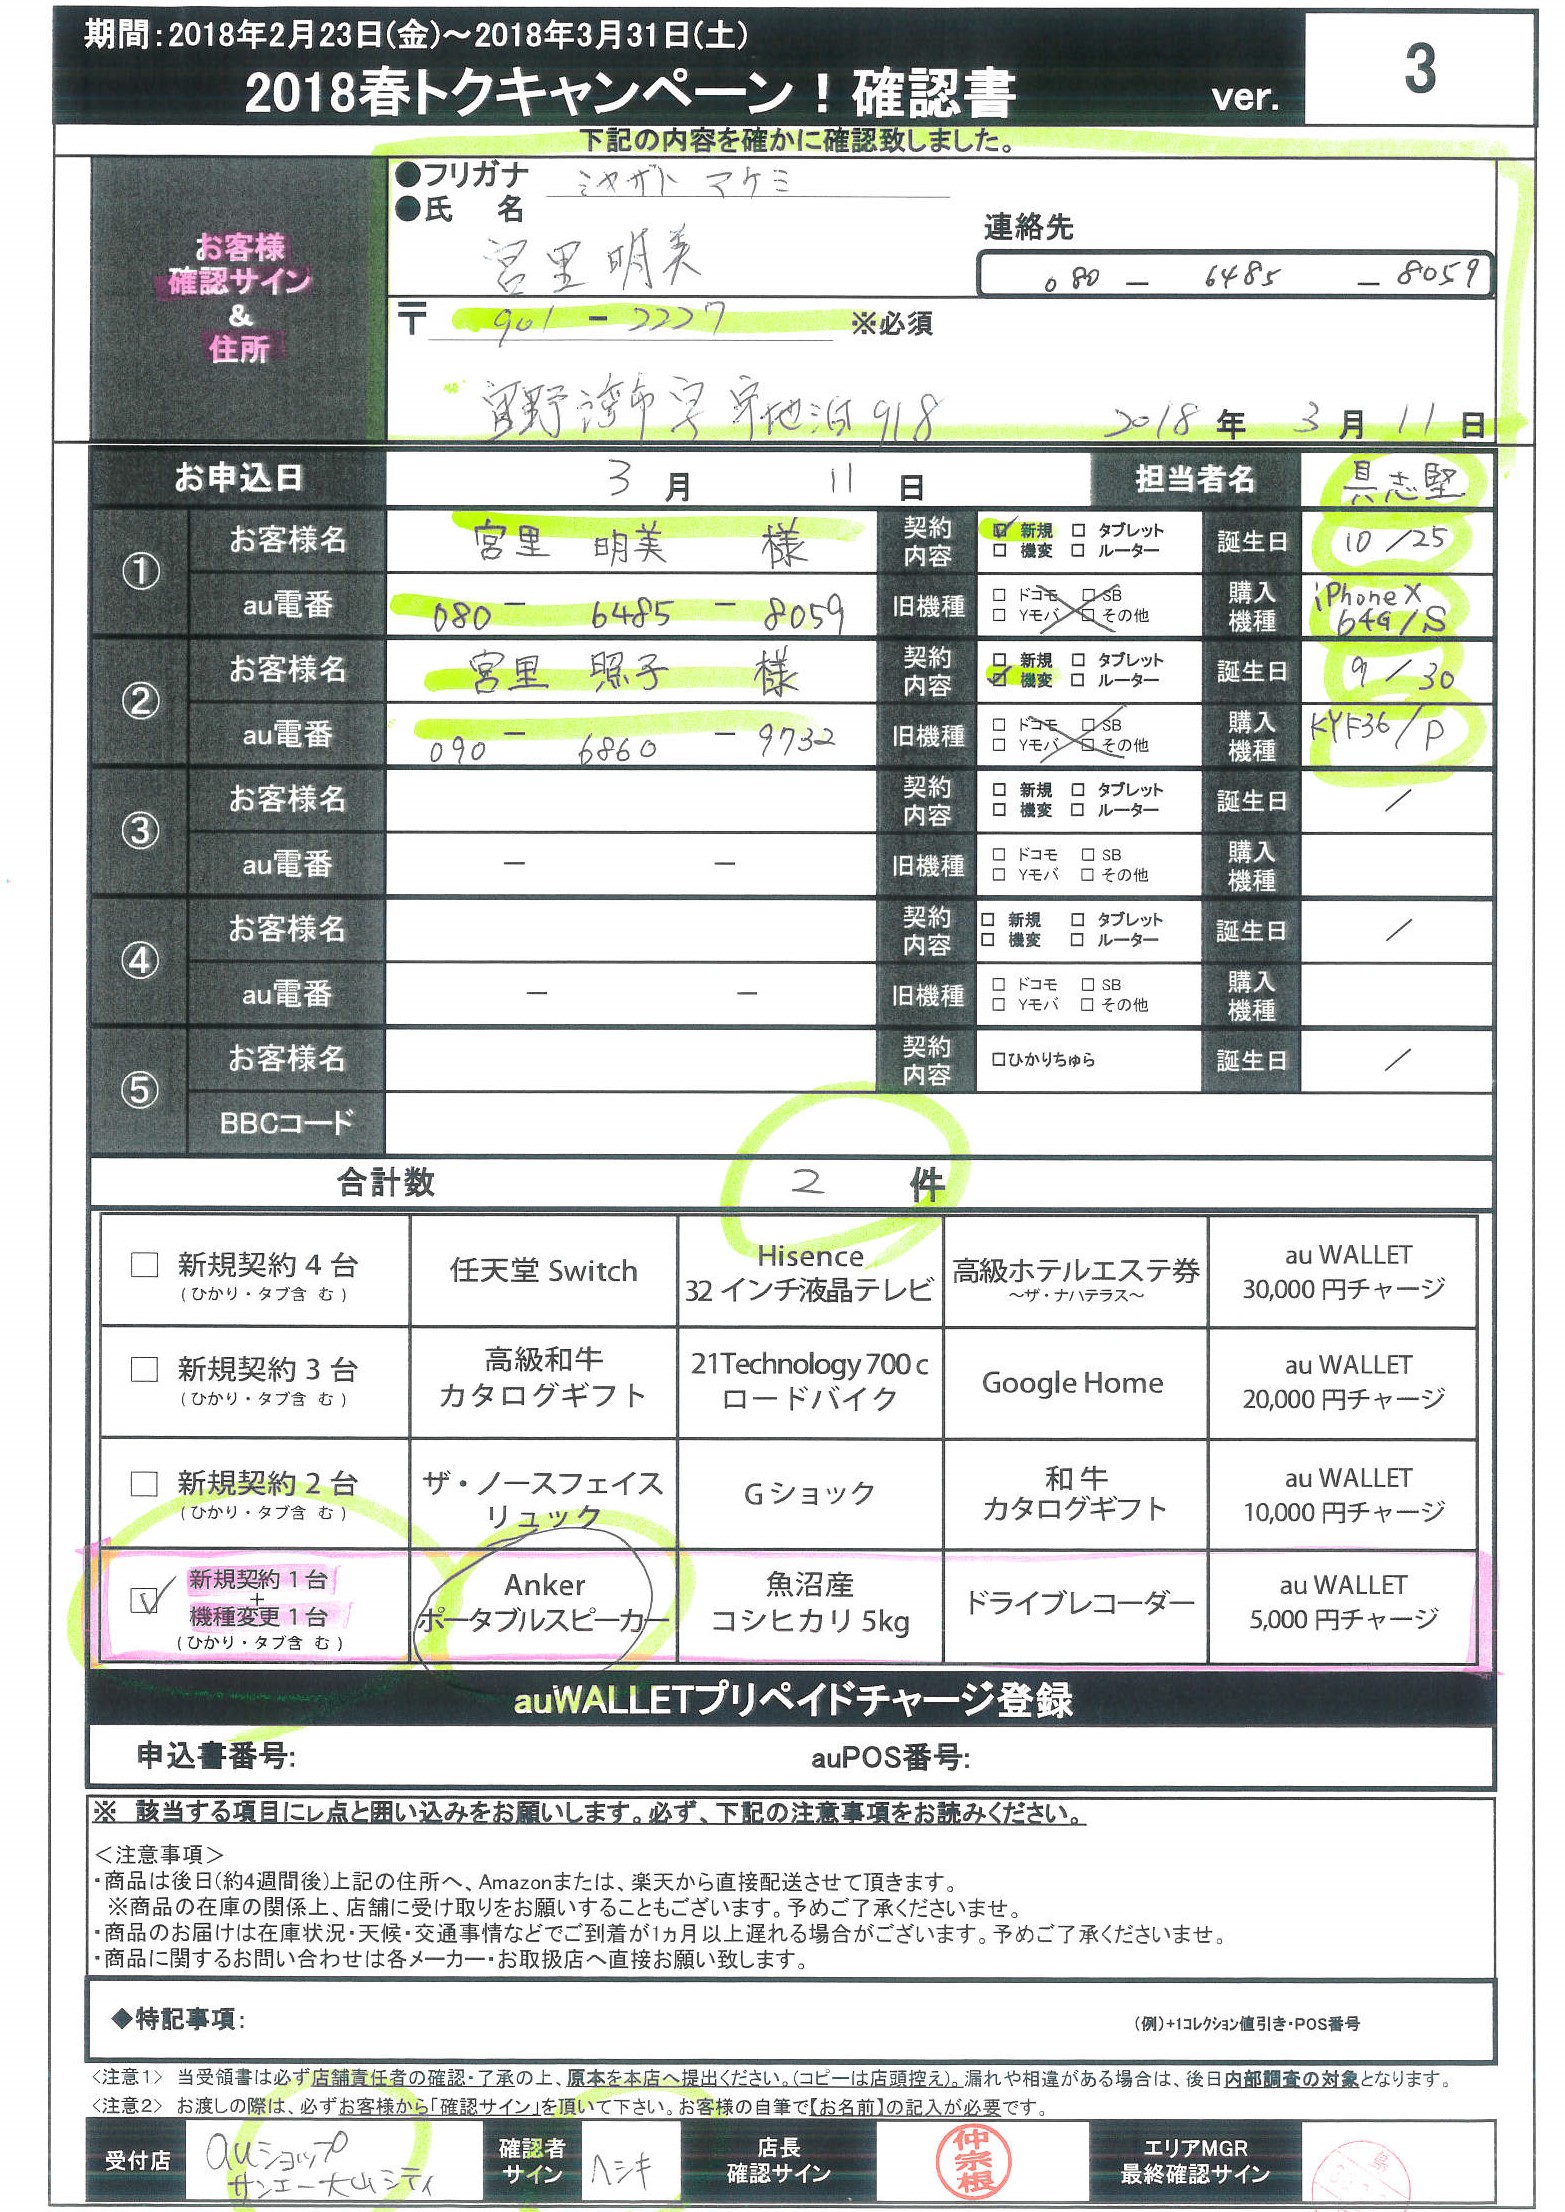 期間：2018年2月23日(金)～2018年3月31日(土)
2018春トクキャンペーン！確認書 ver. 3
下記の内容を確かに確認致しました。
お客様
確認サイン
&
住所
●フリガナ ミヤザト マケミ
●氏 名 宮里 明美
連絡先
080 － 6485 － 8059
〒 901 － 2227 ※必須
宜野湾市字宇地泊918 2018 年 3 月 11 日
お申込日 3 月 11 日 担当者名 具志堅
① お客様名 宮里 明美 様 契約内容 ☑ 新規 □ タブレット □ 機変 □ ルーター 誕生日 10 / 25
au電番 080 － 6485 － 8059 旧機種 □ ドコモ □ SB □ Yモバ □ その他 購入機種 iPhoneX 64G/S
② お客様名 宮里 照子 様 契約内容 □ 新規 □ タブレット ☑ 機変 □ ルーター 誕生日 9 / 30
au電番 090 － 6860 － 9732 旧機種 □ ドコモ □ SB □ Yモバ □ その他 購入機種 KYF36/P
③ お客様名 契約内容 □ 新規 □ タブレット □ 機変 □ ルーター 誕生日 /
au電番 － － 旧機種 □ ドコモ □ SB □ Yモバ □ その他 購入機種
④ お客様名 契約内容 □ 新規 □ タブレット □ 機変 □ ルーター 誕生日 /
au電番 － － 旧機種 □ ドコモ □ SB □ Yモバ □ その他 購入機種
⑤ お客様名 契約内容 □ひかりちゅら 誕生日 /
BBCコード
合計数 2 件
□ 新規契約 4 台 (ひかり・タブ含 む) 任天堂 Switch Hisence 32 インチ液晶テレビ 高級ホテルエステ券 ～ザ・ナハテラス～ au WALLET 30,000 円チャージ
□ 新規契約 3 台 (ひかり・タブ含 む) 高級和牛 カタログギフト 21Technology 700 c ロードバイク Google Home au WALLET 20,000 円チャージ
□ 新規契約 2 台 (ひかり・タブ含 む) ザ・ノースフェイス リュック G ショック 和 牛 カタログギフト au WALLET 10,000 円チャージ
☑ 新規契約 1 台 + 機種変更 1 台 (ひかり・タブ含 む) Anker ポータブルスピーカー 魚沼産 コシヒカリ 5kg ドライブレコーダー au WALLET 5,000 円チャージ
auWALLETプリペイドチャージ登録
申込書番号: auPOS番号:
※ 該当する項目にレ点と囲い込みをお願いします。必ず、下記の注意事項をお読みください。
＜注意事項＞
・商品は後日(約4週間後)上記の住所へ、Amazonまたは、楽天から直接配送させて頂きます。
※商品の在庫の関係上、店舗に受け取りをお願いすることもございます。予めご了承くださいませ。
・商品のお届けは在庫状況・天候・交通事情などでご到着が1ヵ月以上遅れる場合がございます。予めご了承くださいませ。
・商品に関するお問い合わせは各メーカー・お取扱店へ直接お願い致します。
◆特記事項: (例)+1コレクション値引き・POS番号
<注意1> 当受領書は必ず店舗責任者の確認・了承の上、原本を本店へ提出ください。(コピーは店頭控え)。漏れや相違がある場合は、後日内部調査の対象となります。
<注意2> お渡しの際は、必ずお客様から「確認サイン」を頂いて下さい。お客様の自筆で【お名前】の記入が必要です。
受付店 auショップ サンエー大山シティ 確認者サイン ヘシキ 店長確認サイン 仲宗根 エリアMGR最終確認サイン